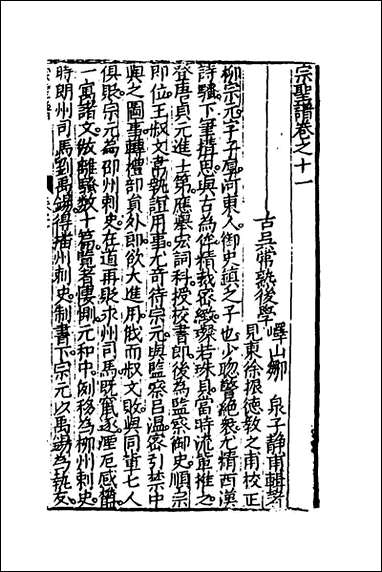 宗聖譜卷之十一
古吳常熟後學嶧山鄒泉子靜甫輯著
見東徐振德敎之甫校正
柳宗元字子厚河東人御史鎮之子也少聰警絕衆尤精西漢
詩騷下筆搆思與古為侔精裁密緻璨若珠貝當時流輩推之
登唐貞元進士第應舉宏詞科授校書郎後為監察御史順宗
即位王叔文韋執誼用事尤奇待宗元與監察呂溫密引禁中
與之圖事轉禮部員外郎欲大進用俄而叔文敗與同輩七人
俱貶宗元為邵州刺史在道再貶永州司馬既竄逐堙厄感鬱
一寓諸文倣離騷數十篇覽者悽惻元和中例移為柳州刺史
時朗州司馬劉禹錫得播州刺史制書下宗元以禹錫為執友